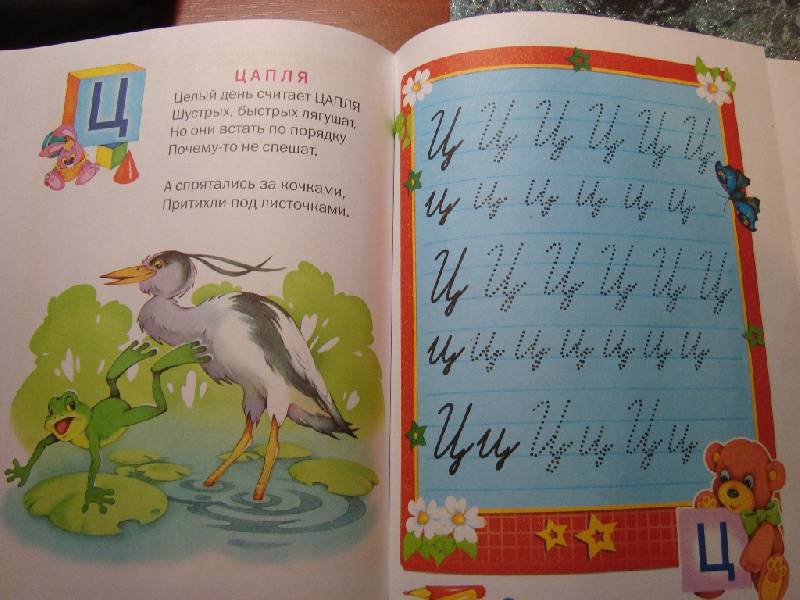 Ц
ЦАПЛЯ
Целый день считает ЦАПЛЯ
Шустрых, быстрых лягушат,
Но они встать по порядку
Почему-то не спешат.
А спрятались за кочками,
Притихли под листочками.
Ц Ц Ц Ц Ц Ц
ц ц ц ц ц ц
Ц Ц Ц Ц Ц Ц
ц ц ц ц ц ц ц
Ц ц Ц ц Ц ц
Ц